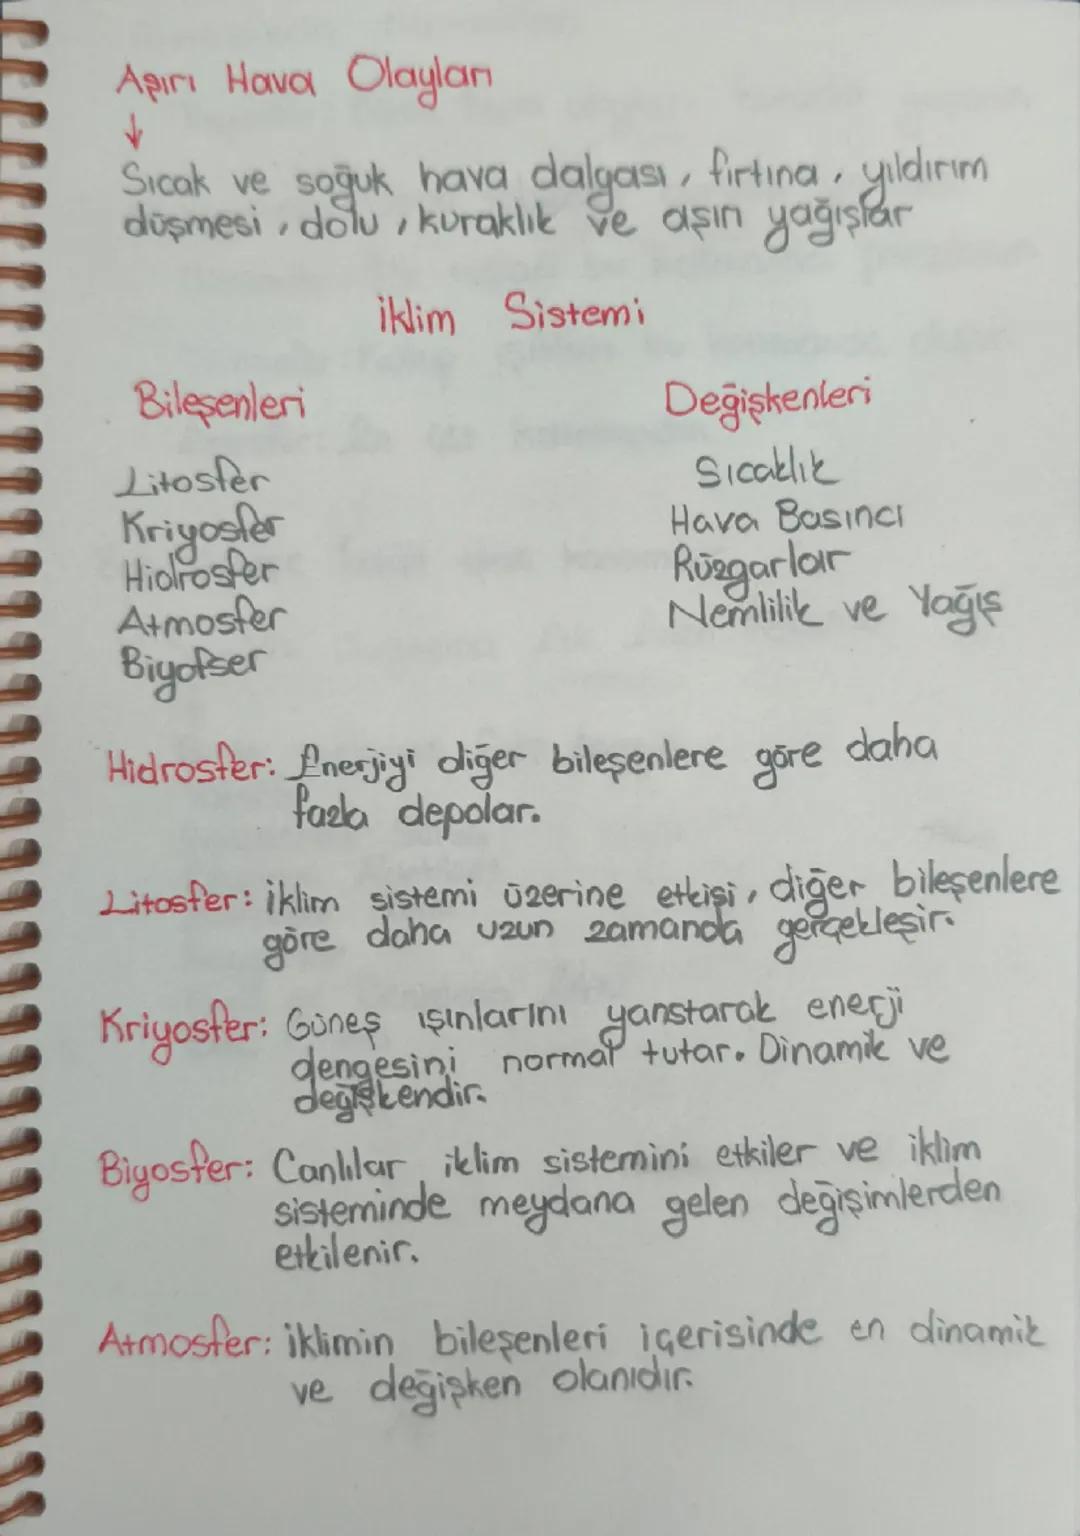 Aşırı Hava Olayları
↓
Sıcak ve soğuk hava dalgası, fırtına, yıldırım
düşmesi, dolu, kuraklık ve aşırı yağışlar
iklim Sistemi
Bileşenleri
Litosfer
Kriyosfer
Hidrosfer
Atmosfer
Biyofser
Değişkenleri
Sıcaklık
Hava Basıncı
Rüzgarlar
Nemlilik ve Yağış
Hidrosfer: Enerjiyi diğer bileşenlere göre daha
fazla depolar.
Litosfer: iklim sistemi üzerine etkisi, diğer bileşenlere
göre daha uzun zamanda gerçekleşir.
Kriyosfer: Güneş ışınlarını yanstarak enerji
dengesini normal tutar. Dinamik ve
değişkendir.
Biyosfer: Canlılar iklim sistemini etkiler ve iklim
sisteminde meydana gelen değişimlerden
etkilenir.
Atmosfer: iklimin bileşenleri içerisinde en dinamik
ve değişken olanıdır.